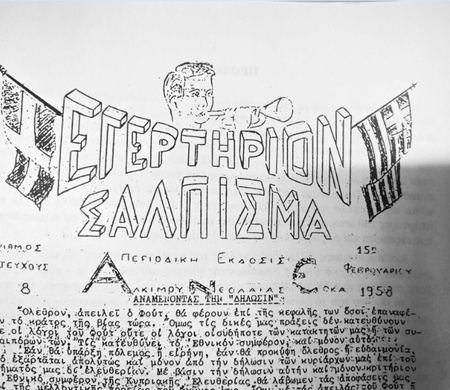 ΕΓΕΡΤΗΡΙΟΝ
ΣΑΛΠΙΣΜΑ
ΠΕΡΙΟΔΙΚΗ ΕΚΔΟΣΙΣ 15η
ΤΕΥΧΟΥΣ Α Ν Ε ΦΕΒΡΟΥΑΡΙΟΥ
8 ΑΛΚΙΜΟΥ ΝΕΟΛΑΙΑΣ ΕΟΚΑ 1958
ΑΝΑΜΕΝΟΝΤΑΣ ΤΗΝ "ΔΗΛΩΣΙΝ"
"Ολεθρον, ἀπειλεῖ ὁ Φούτ, θά φέρουν ἐπί τῆς κεφαλῆς των ὅσοι ἐπαναφέ-
τό κράτος τῆς βίας τώρα. Ὅμως τίς δικές μας πράξεις δέν κατευθύνουν
οἱ λόγοι τοῦ Φούτ οὔτε οἱ λόγοι οἱουδήποτε τῶν κατακτητῶν μας ἤ τῶν συ-
τῶν. Τίς κατευθύνει τό Ἐθνικόν συμφέρον καί μόνον αὐτό.
Ἐάν θά ὑπάρξῃ πόλεμος ἤ εἰρήνη, ἐάν θά προκύψῃ ὄλεθρος ἤ εὐδαιμονία,
ἀπολύτως καί μόνον ἀπό τήν δήλωσιν τῶν κυριάρχων μας ἐπί τοῦ
μας δι' ἐλευθερίαν. Μέ βάσιν τήν δήλωσιν αὐτήν καί μόνον κριτήριον
Ἐθνικόν συμφέρον τῆς Κυπριακῆς Ἐλευθερίας θά λάβωμεν τάς ἀποφάσεις μας